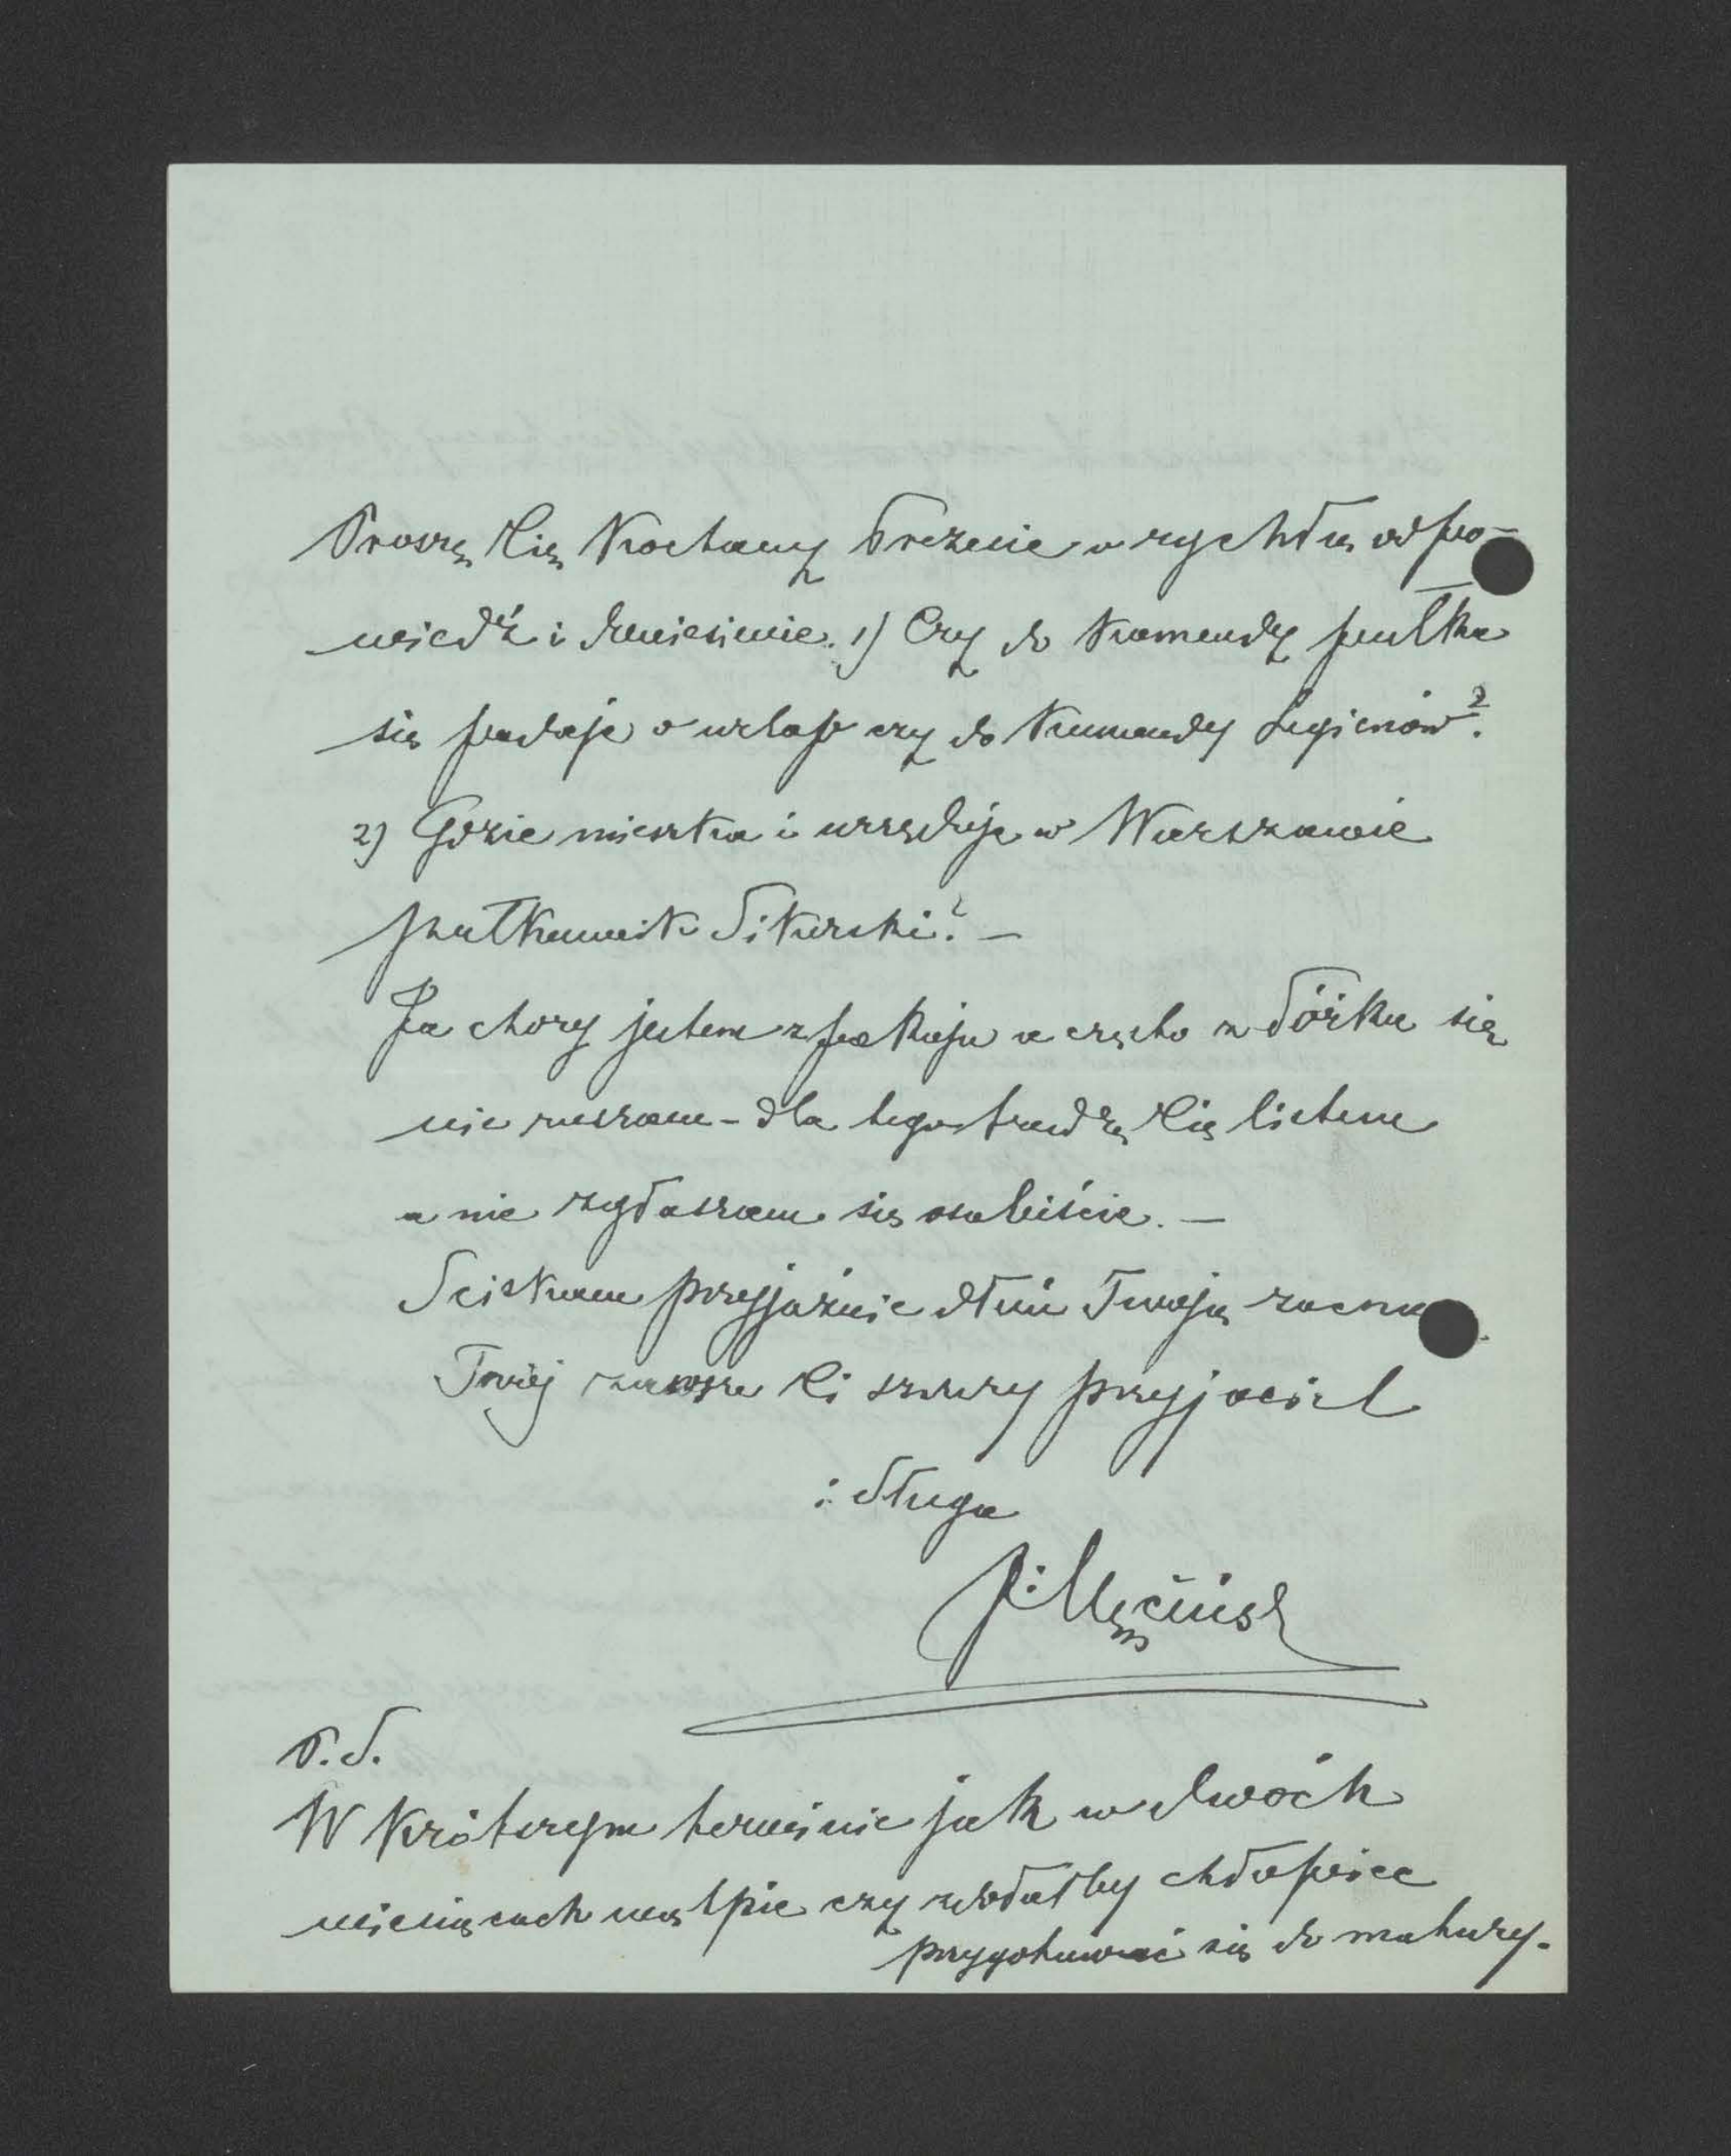 Proszę Cię Kochany Prezesie o rychłą odpo-
wiedź i doniesienie. 1) Czy do Komendy pułku
się podaje o urlop czy do Komendy Legionów?
2) Gdzie mieszka i urzęduje w Warszawie
pułkownik Sikorski? —
Ja chory jestem z pokoju a często z łóżka się
nie ruszam - dla tego trudzę Cię listem
a nie zgłaszam się osobiście. —
Sciskam przyjaźnie dłoń Twoją zacną
Twój zawsze Ci szczery przyjaciel
i sługa
J: Męciński
P. S.
W krótszym terminie jak w dwóch
miesiącach wątpie czy zdołałby chłopiec
przygotować się do matury.